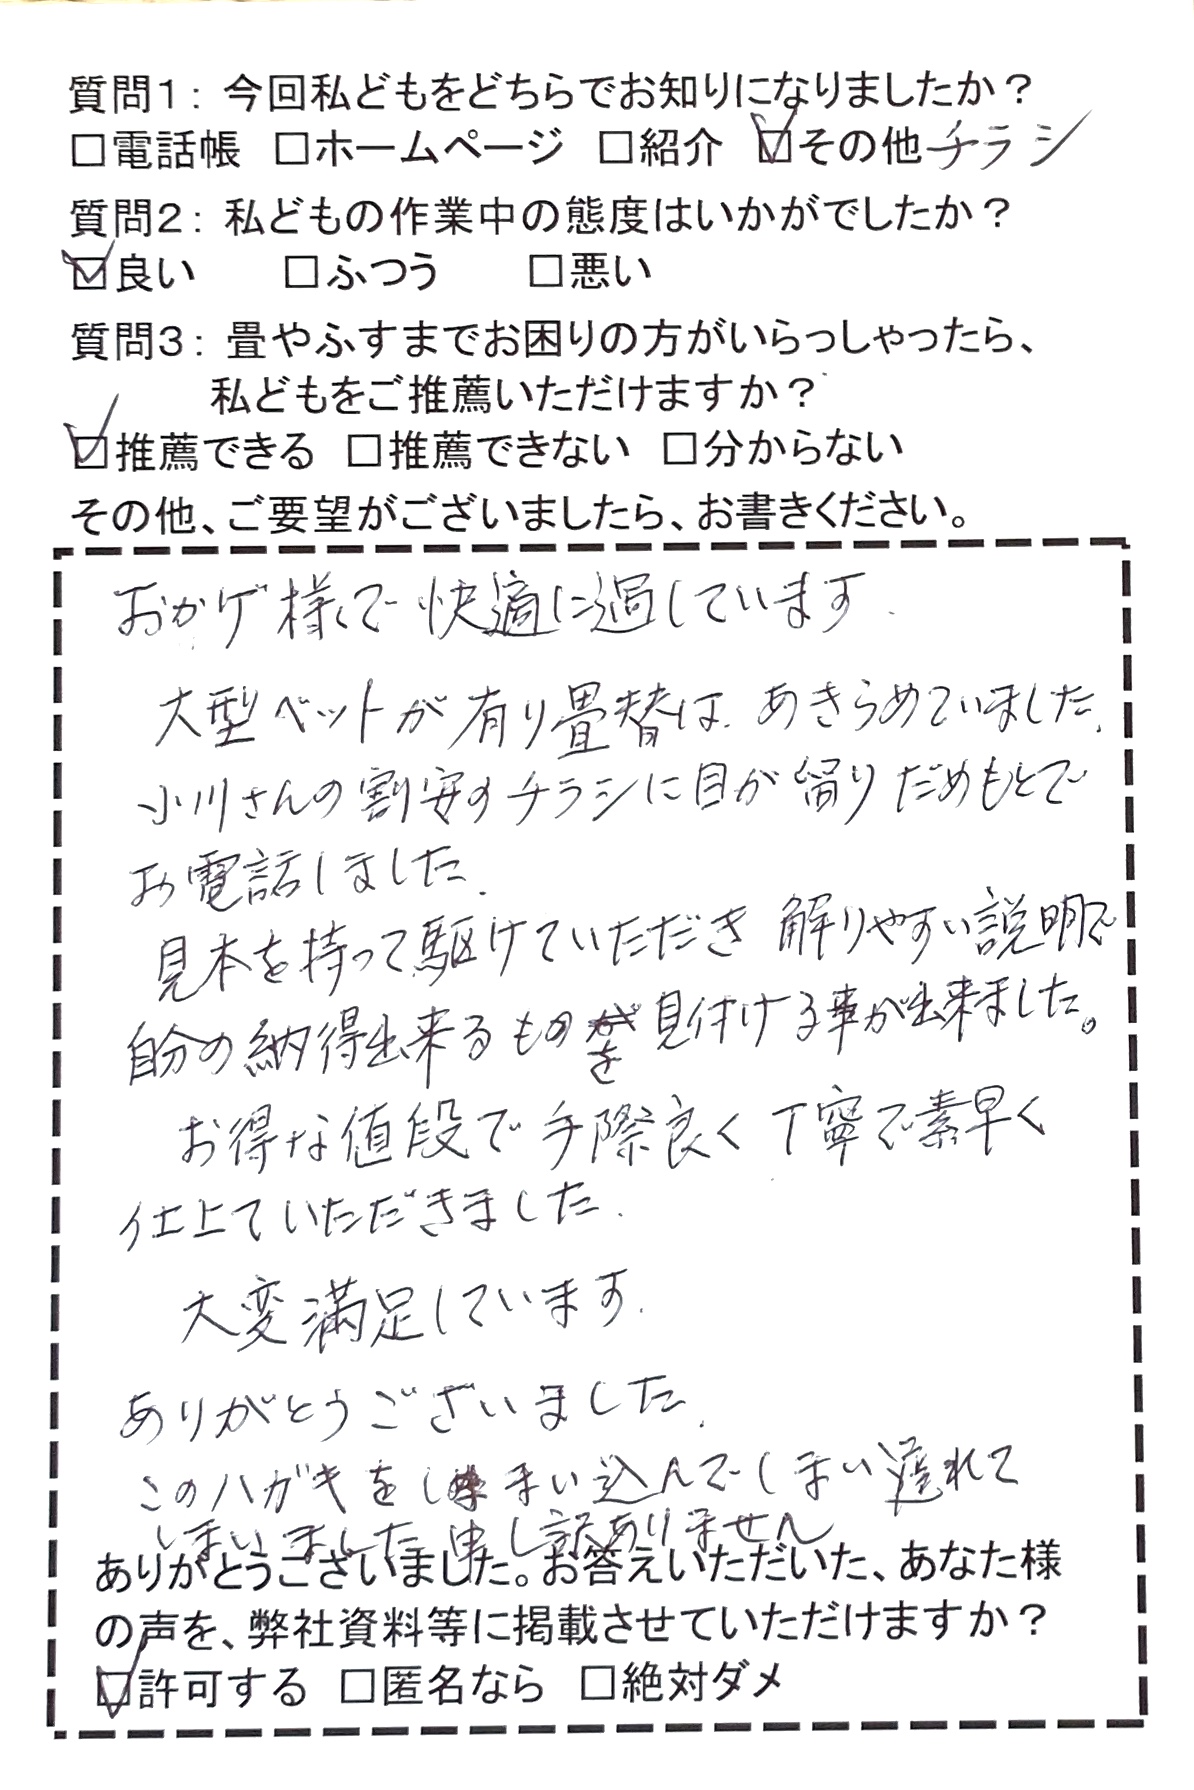 質問1： 今回私どもをどちらでお知りになりましたか？
□電話帳 □ホームページ □紹介 ☑その他 チラシ
質問2： 私どもの作業中の態度はいかがでしたか？
☑良い □ふつう □悪い
質問3： 畳やふすまでお困りの方がいらっしゃったら、
私どもをご推薦いただけますか？
☑推薦できる □推薦できない □分からない
その他、ご要望がございましたら、お書きください。
おかげ様で 快適に過しています.
大型ベットが有り畳替は. あきらめていました.
小川さんの割安のチラシに目が留り だめもとで
お電話しました.
見本を持って駆けていただき 解りやすい説明で
自分の納得出来るものを見付ける事が出来ました。
お得な値段で手際良く丁寧で素早く
仕上ていただきました.
大変満足しています.
ありがとうございました.
このハガキをしまい込んでしまい遅れて
しまいました 申し訳ありません
ありがとうございました。お答えいただいた、あなた様
の声を、弊社資料等に掲載させていただけますか？
☑許可する □匿名なら □絶対ダメ